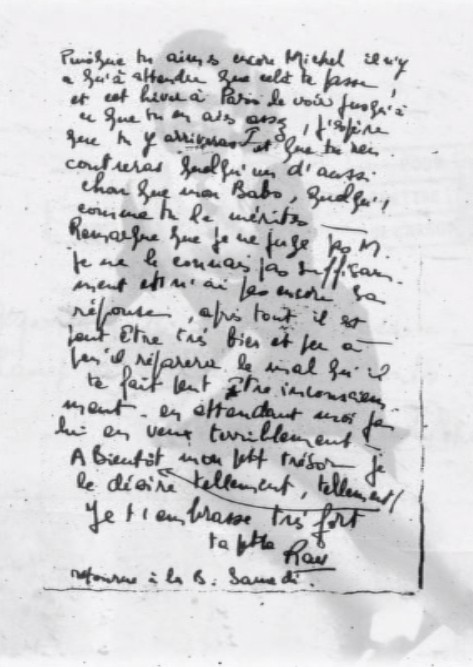 Puisque tu aimes encore Michel il n'y
a qu'à attendre que cela te passe,
et cet hiver à Paris le voir jusqu'à
ce que tu en ais assez, j'espère
que tu y arriveras et que tu ren
contreras quelqu'un d'aussi
chou que mon Babo, quelqu',
comme tu le mérites
Remarque que je ne juge pas M.
je ne le connais pas suffisam-
ment et n'ai pas encore sa
réponse, après tout il est
peut être très bien et peu à
peu il réparera le mal qu'il
te fait peut être inconsciem-
ment - en attendant moi je
lui en veux terriblement -
A Bientôt mon ptt trésor je
le désire tellement, tellement
Je t'embrasse très fort
ta ptte
retourne à la B. Samedi.